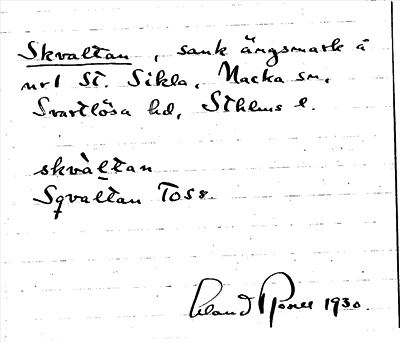 Skvaltan, sank ängsmark å
nr1 St. Sikla, Nacka sn,
Svartlösa hd, Sthlms l.
skvàltan
Sqvaltan To 58.
1930.